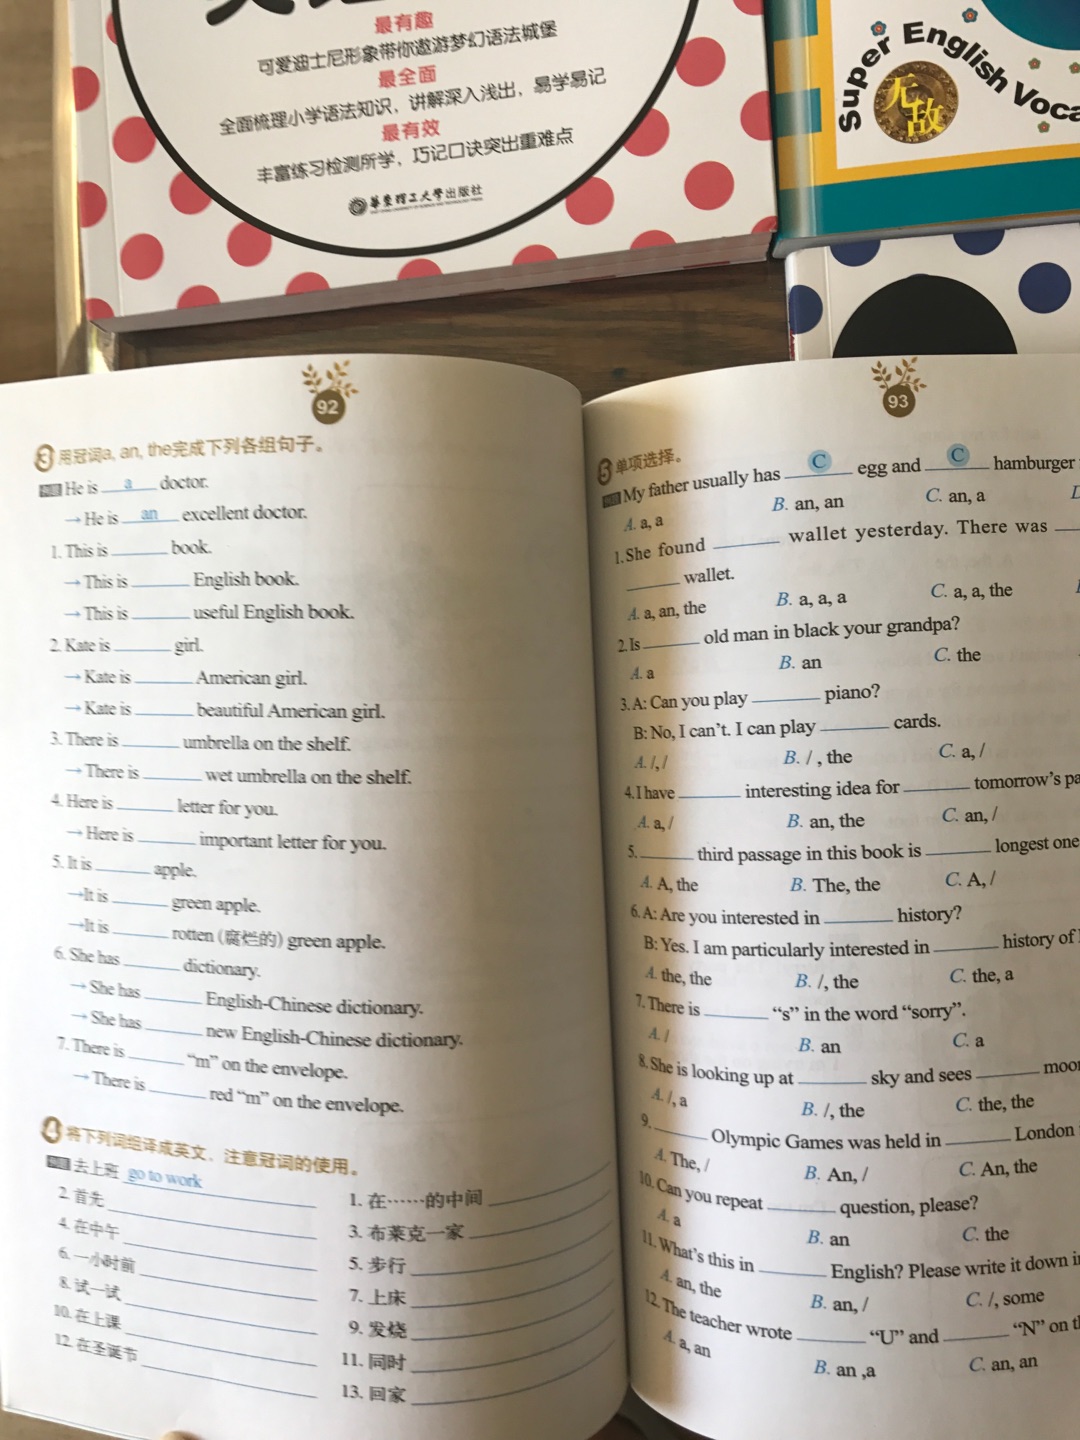 最有趣
可爱迪士尼形象带你遨游梦幻语法城堡
最全面
全面梳理小学语法知识，讲解深入浅出，易学易记
最有效
丰富练习检测所学，巧记口诀突出重难点
華东理工大學出版社
Super English Voca
无敌
92
3 用冠词a, an, the完成下列各组句子。
He is a doctor.
→He is an excellent doctor.
1. This is ______ book.
→This is ______ English book.
→This is ______ useful English book.
2. Kate is ______ girl.
→Kate is ______ American girl.
→Kate is ______ beautiful American girl.
3. There is ______ umbrella on the shelf.
→There is ______ wet umbrella on the shelf.
4. Here is ______ letter for you.
→Here is ______ important letter for you.
5. It is ______ apple.
→It is ______ green apple.
→It is ______ rotten (腐烂的) green apple.
6. She has ______ dictionary.
→She has ______ English-Chinese dictionary.
→She has ______ new English-Chinese dictionary.
7. There is ______ “m” on the envelope.
→There is ______ red “m” on the envelope.
4 将下列词组译成英文，注意冠词的使用。
去上班 go to work
1. 在……的中间
2. 首先
3. 布莱克一家
4. 在中午
5. 步行
6. 一小时前
7. 上床
8. 试一试
9. 发烧
10. 在上课
11. 同时
12. 在圣诞节
13. 回家
93
5 单项选择。
My father usually has C egg and C hamburger
A. a, a B. an, an C. an, a
1. She found ______ wallet yesterday. There was ______
______ wallet.
A. a, an, the B. a, a, a C. a, a, the
2. Is ______ old man in black your grandpa?
A. a B. an C. the
3. A: Can you play ______ piano?
B: No, I can't. I can play ______ cards.
A. /, / B. / , the C. a, /
4. I have ______ interesting idea for ______ tomorrow's pa
A. a, / B. an, the C. an, /
5. ______ third passage in this book is ______ longest one
A. A, the B. The, the C. A, /
6. A: Are you interested in ______ history?
B: Yes. I am particularly interested in ______ history of
A. the, the B. /, the C. the, a
7. There is ______ “s” in the word “sorry”.
A. / B. an C. a
8. She is looking up at ______ sky and sees ______ moo
A. /, a B. /, the C. the, the
9. ______ Olympic Games was held in ______ London
A. The, / B. An, / C. An, the
10. Can you repeat ______ question, please?
A. a B. an C. the
11. What's this in ______ English? Please write it down i
A. an, the B. an, / C. /, some
12. The teacher wrote ______ “U” and ______ “N” on t
A. a, an B. an ,a C. an, an